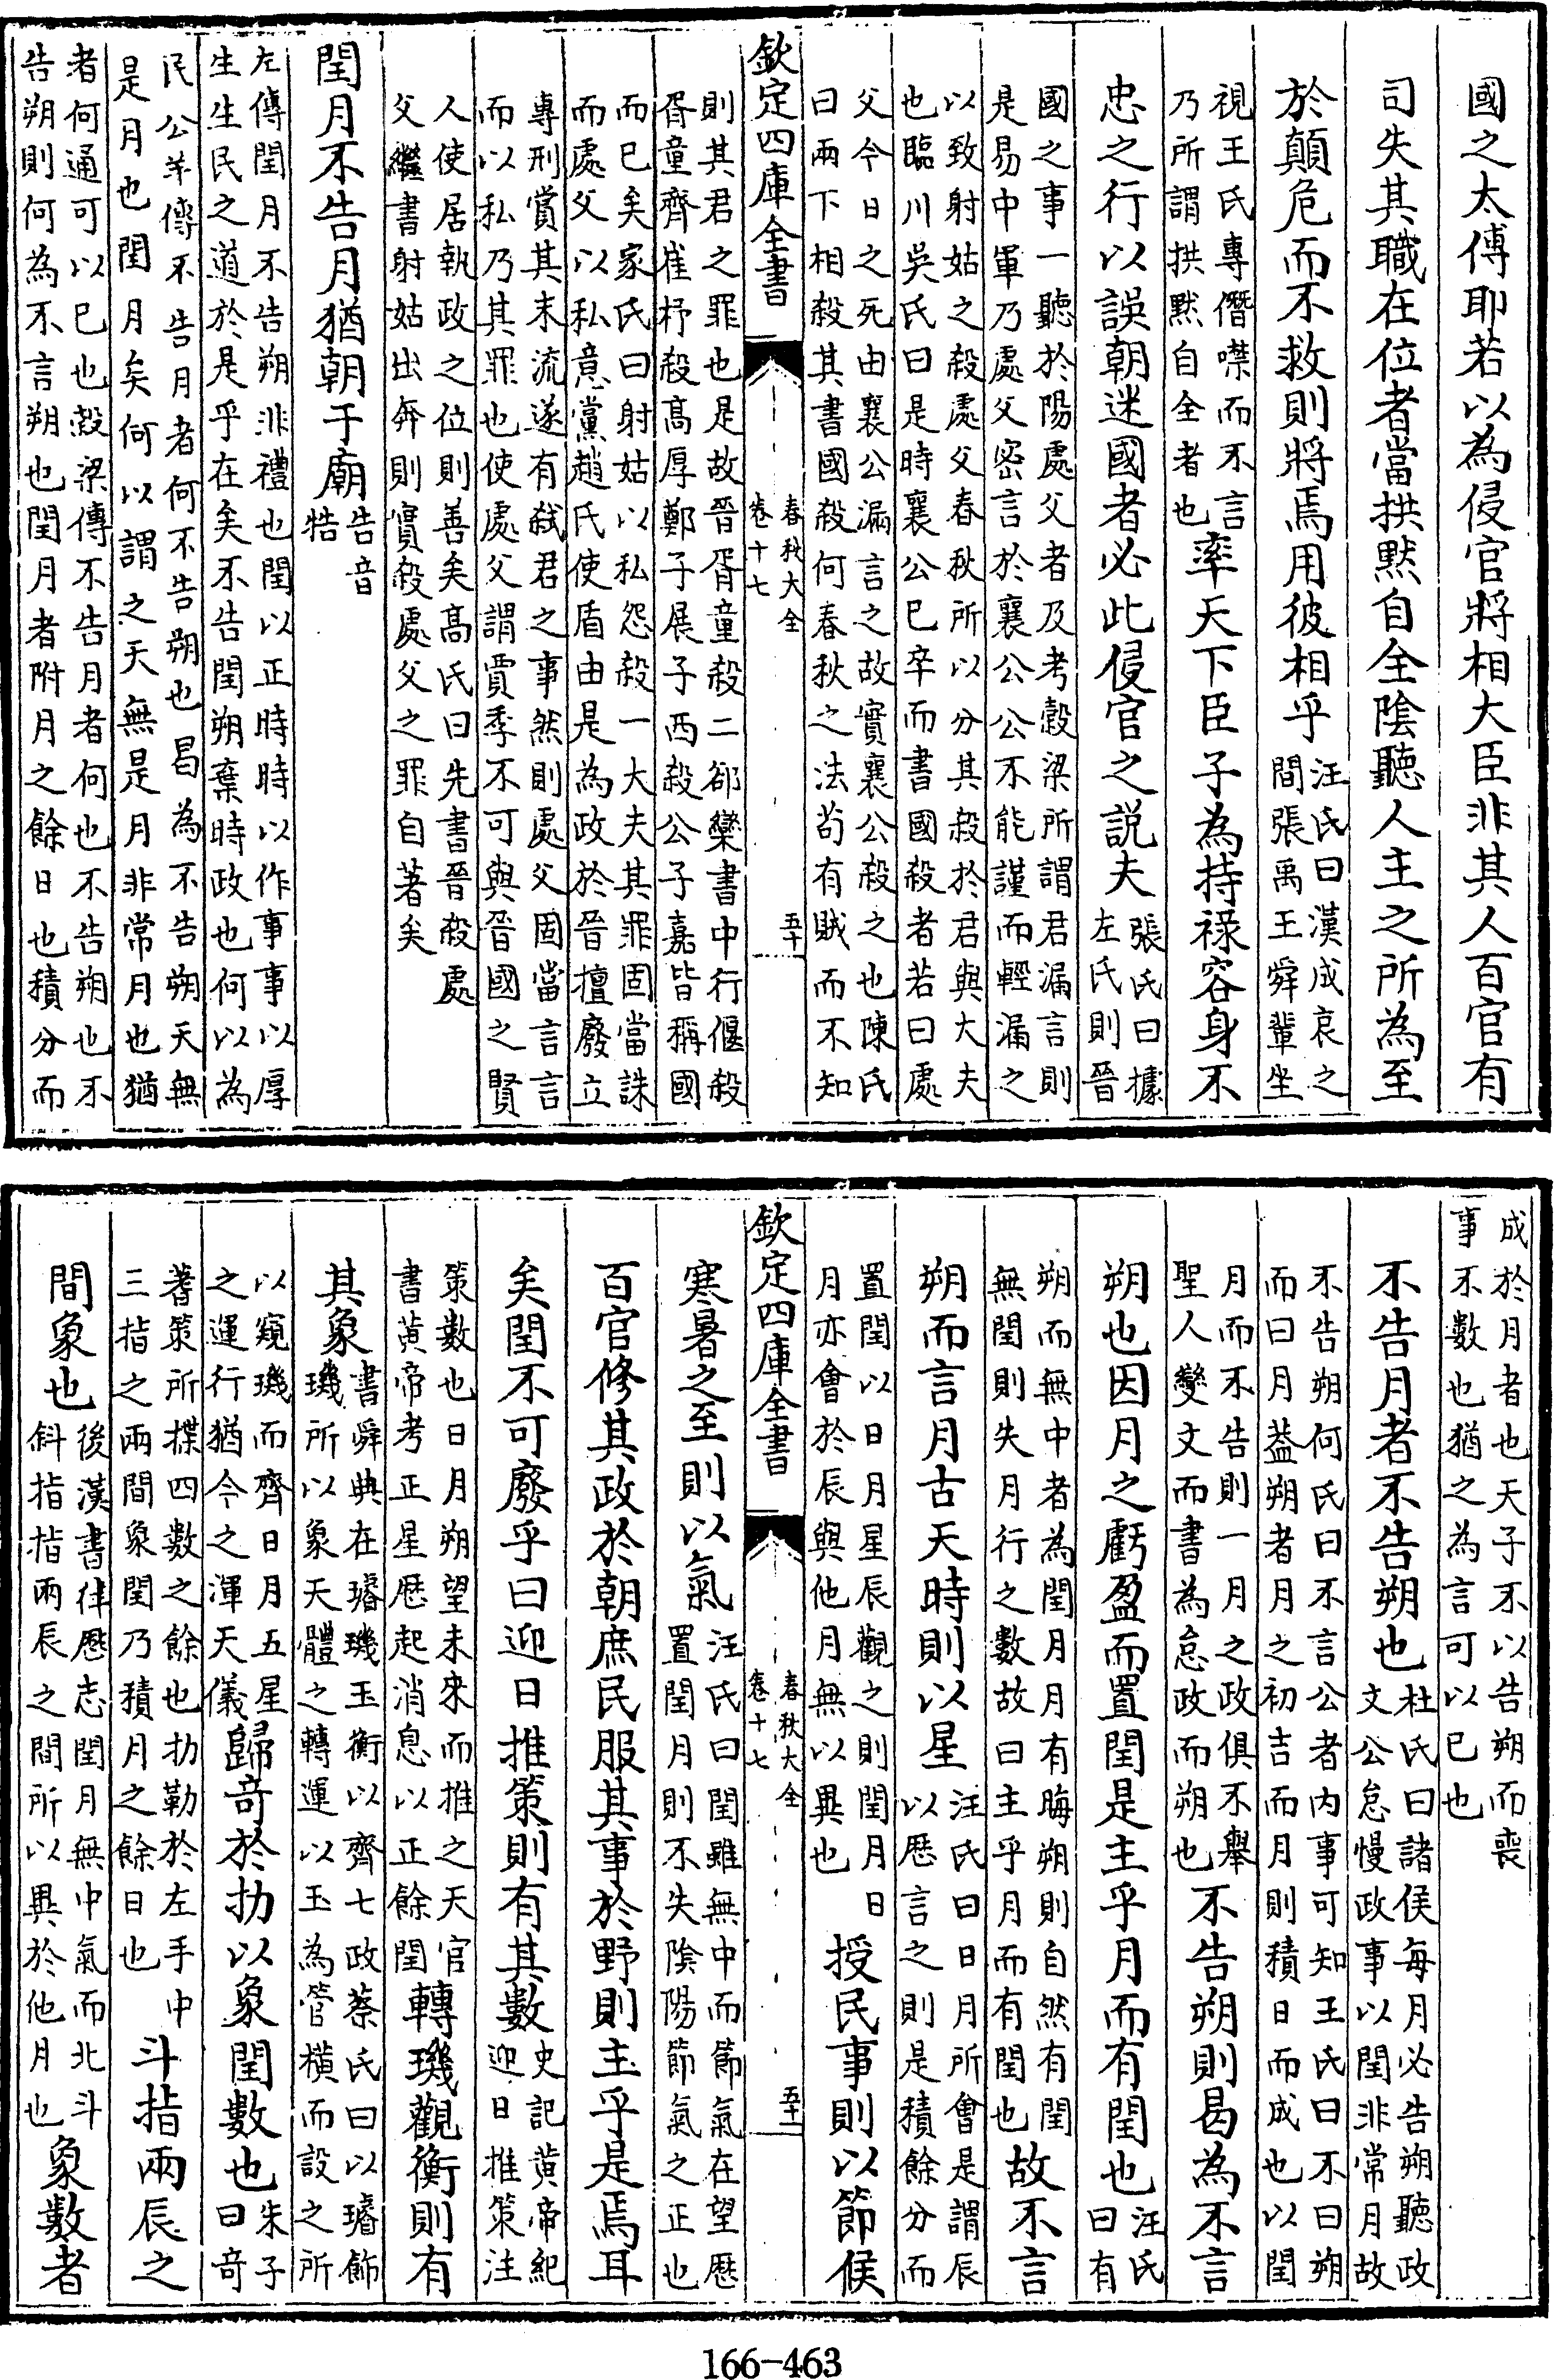 國之太傅耶若以為侵官將相大臣非其人百官有
司失其職在位者當拱黙自全陰聽人主之所為至
於顛危而不救則將焉用彼相乎
汪氏曰漢成哀之
間張禹王舜輩坐
視王氏専僭噤而不言
乃所謂拱黙自全者也
率天下臣子為持禄容身不
忠之行以誤朝迷國者必此侵官之説夫
張氏曰據
左氏則晉
國之事一聽於陽處父者及考穀梁所謂君漏言則
是易中軍乃處父宻言於襄公公不能謹而輕漏之
以致射姑之殺處父春秋所以分其殺於君與大夫
也臨川吳氏曰是時襄公已卒而書國殺者若曰處
父今日之死由襄公漏言之故實襄公殺之也陳氏
曰兩下相殺其書國殺何春秋之法茍有賊而不知
欽定四庫全書
春秋大全
卷十七
五十
則其君之罪也是故晉胥童殺二郤欒書中行偃殺
胥童齊崔杼殺髙厚鄭子展子西殺公子嘉皆稱國
而已矣家氏曰射姑以私怨殺一大夫其罪固當誅
而處父以私意黨趙氏使盾由是為政於晉擅廢立
專刑賞其末流遂有弑君之事然則處父固當言言
而以私乃其罪也使處父謂賈季不可與晉國之賢
人使居執政之位則善矣髙氏曰先書晉殺處
父繼書射姑出奔則實殺處父之罪自著矣
閏月不告月猶朝于廟
告音
牿
左傳閏月不告朔非禮也閏以正時時以作事事以厚
生生民之道於是乎在矣不告閏朔棄時政也何以為
民公羊傳不告月者何不告朔也曷為不告朔天無
是月也閏月矣何以謂之天無是月非常月也猶
者何通可以已也穀梁傳不告月者何也不告朔也不
告朔則何為不言朔也閏月者附月之餘日也積分而
成於月者也天子不以告朔而喪
事不數也猶之為言可以已也
不告月者不告朔也
杜氏曰諸侯每月必告朔聽政
文公怠慢政事以閏非常月故
不告朔何氏曰不言公者内事可知王氏曰不曰朔
而曰月葢朔者月之初吉而月則積日而成也以閏
月而不告則一月之政俱不舉
聖人變文而書為怠政而朔也
不告朔則曷為不言
朔也因月之虧盈而置閏是主乎月而有閏也
汪氏
曰有
朔而無中者為閏月月有晦朔則自然有閏
無閏則失月行之數故曰主乎月而有閏也
故不言
朔而言月古天時則以星
汪氏曰日月所會是謂辰
以厯言之則是積餘分而
置閏以日月星辰觀之則閏月日
月亦會於辰與他月無以異也
授民事則以節候
欽定四庫全書
春秋大全
卷十七
五十一
寒暑之至則以氣
汪氏曰閏雖無中而節氣在望厯
置閏月則不失陰陽節氣之正也
百官修其政於朝庶民服其事於野則主乎是焉耳
矣閏不可廢乎曰迎日推策則有其數
史記黄帝紀
迎日推策注
策數也日月朔望未來而推之天官
書黄帝考正星厯起消息以正餘閏
轉璣觀衡則有
其象
書舜典在璿璣玉衡以齊七政蔡氏曰以璿飾
璣所以象天體之轉運以玉為管橫而設之所
以窺璣而齊日月五星
之運行猶今之渾天儀
歸竒於扐以象閏數也
朱子
曰竒
蓍策所揲四數之餘也扐勒於左手中
三指之兩間象閏乃積月之餘日也
斗指兩辰之
間象也
後漢書律厯志閏月無中氣而北斗
斜指指兩辰之間所以異於他月也
象數者
166-463